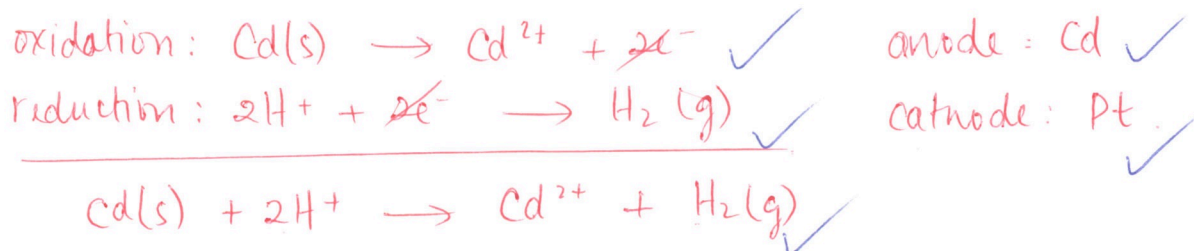 oxidation: Cd(s) → Cd²⁺ + 2e⁻ anode: Cd
reduction: 2H⁺ + 2e⁻ → H₂(g) cathode: Pt
Cd(s) + 2H⁺ → Cd²⁺ + H₂(g)